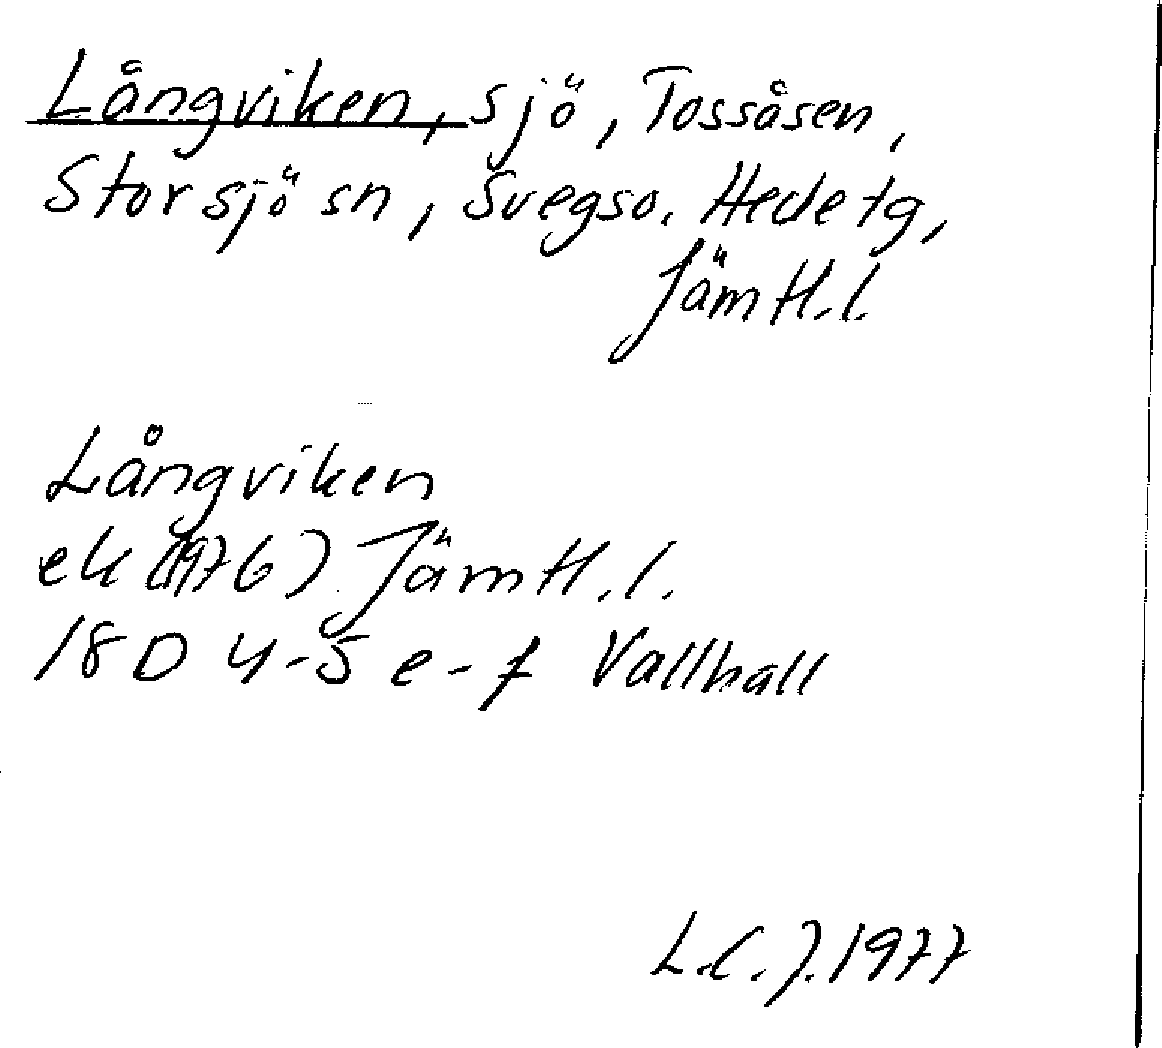 Långviken, sjö, Tossåsen,
Storsjö sn, Svegs o. Hede tg,
Jämtl.l.
Långviken
ek (1976) Jämtl.l.
18D 4-5 e-f Vallhall
L.C.J. 1977